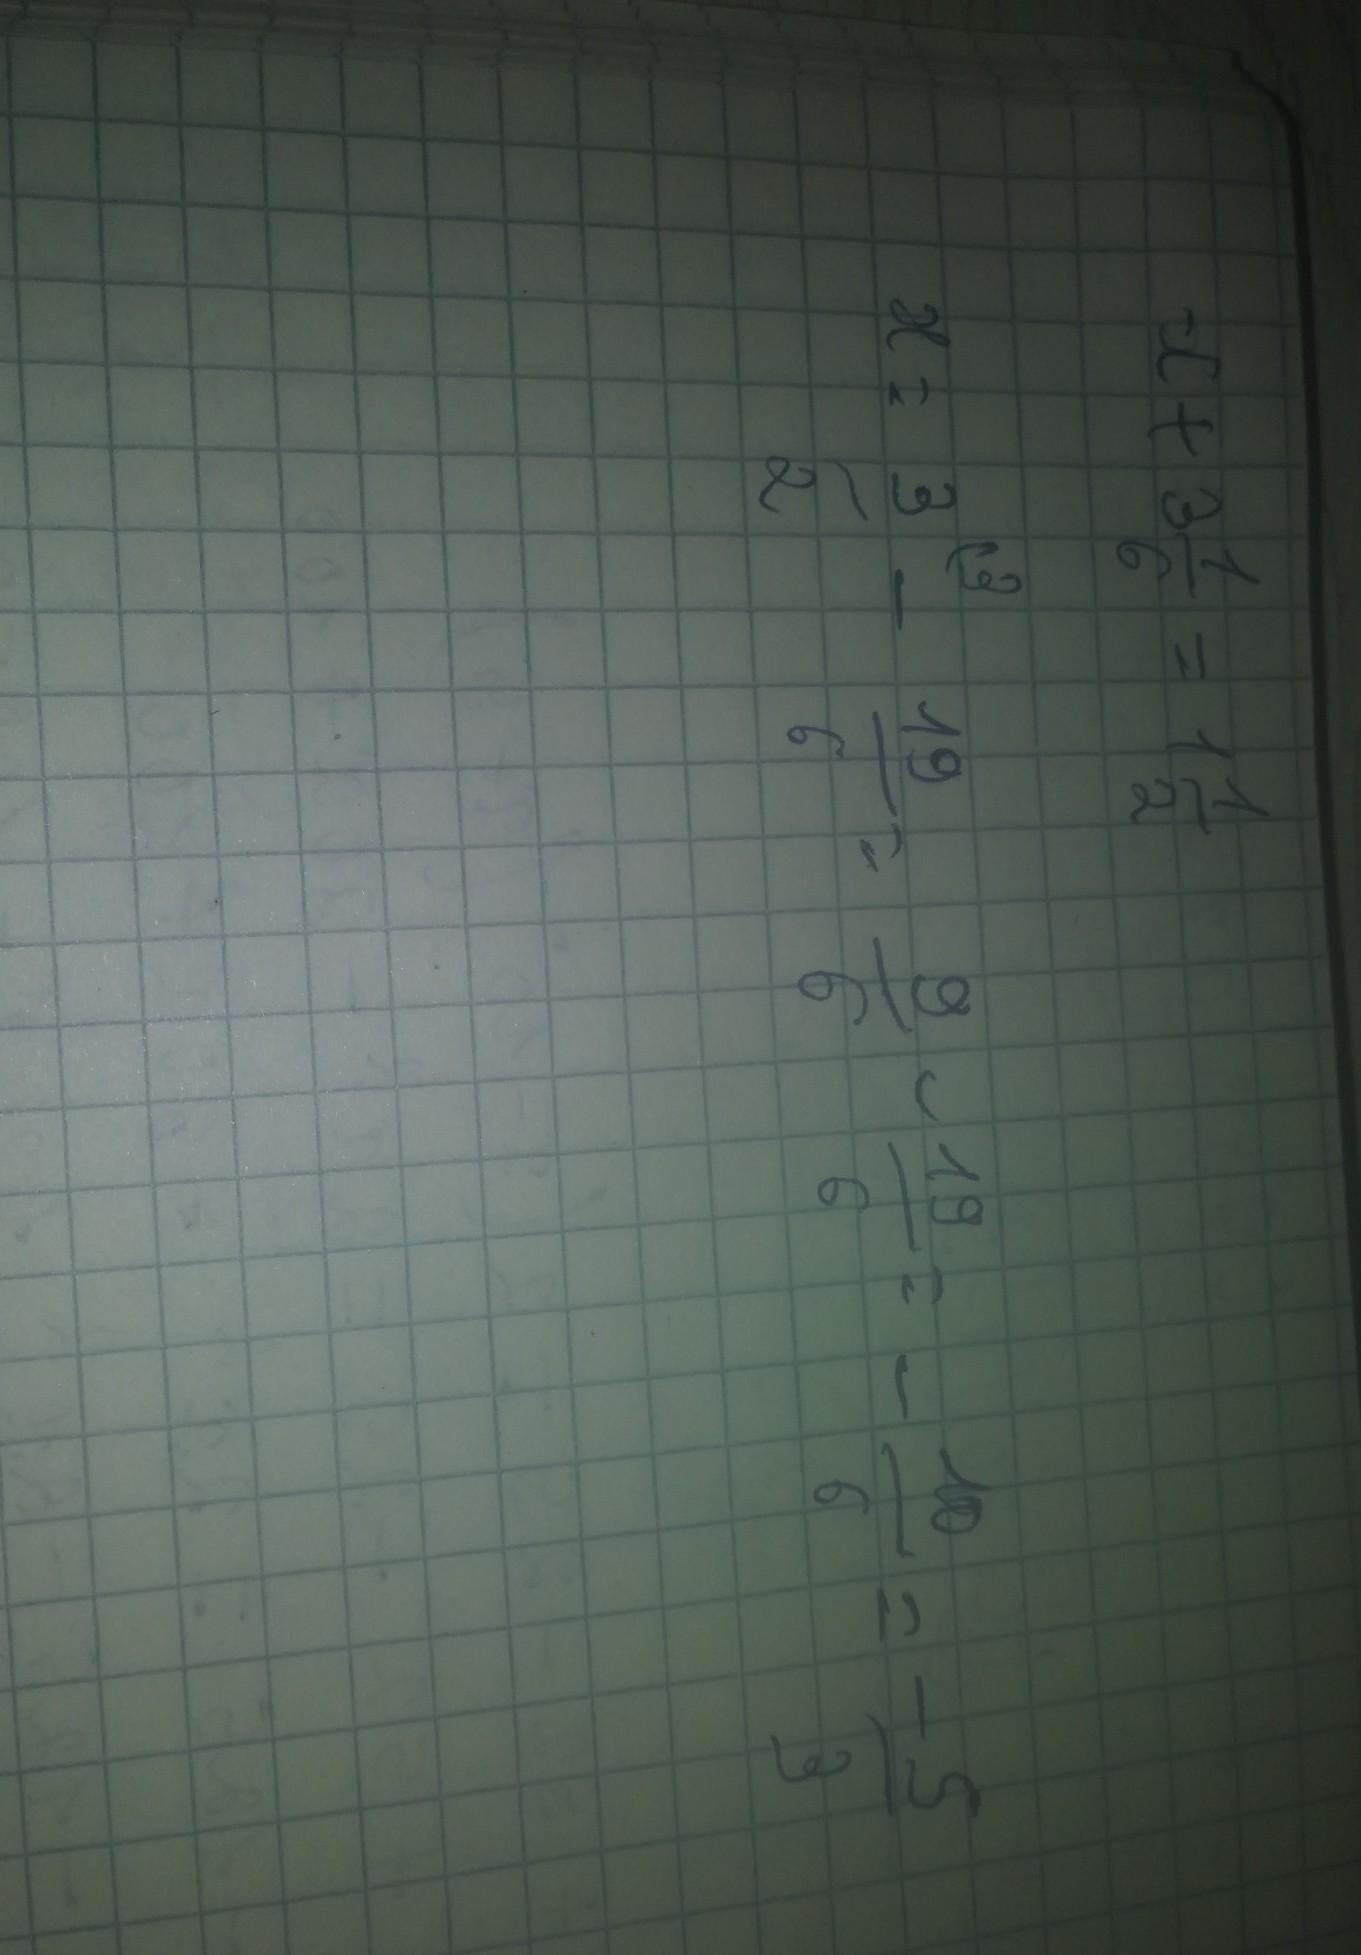 x + 3 1/6 = 1 1/2
x = 3/2 (3 - 19/6 = 9/6 - 19/6 = - 10/6 = - 5/3